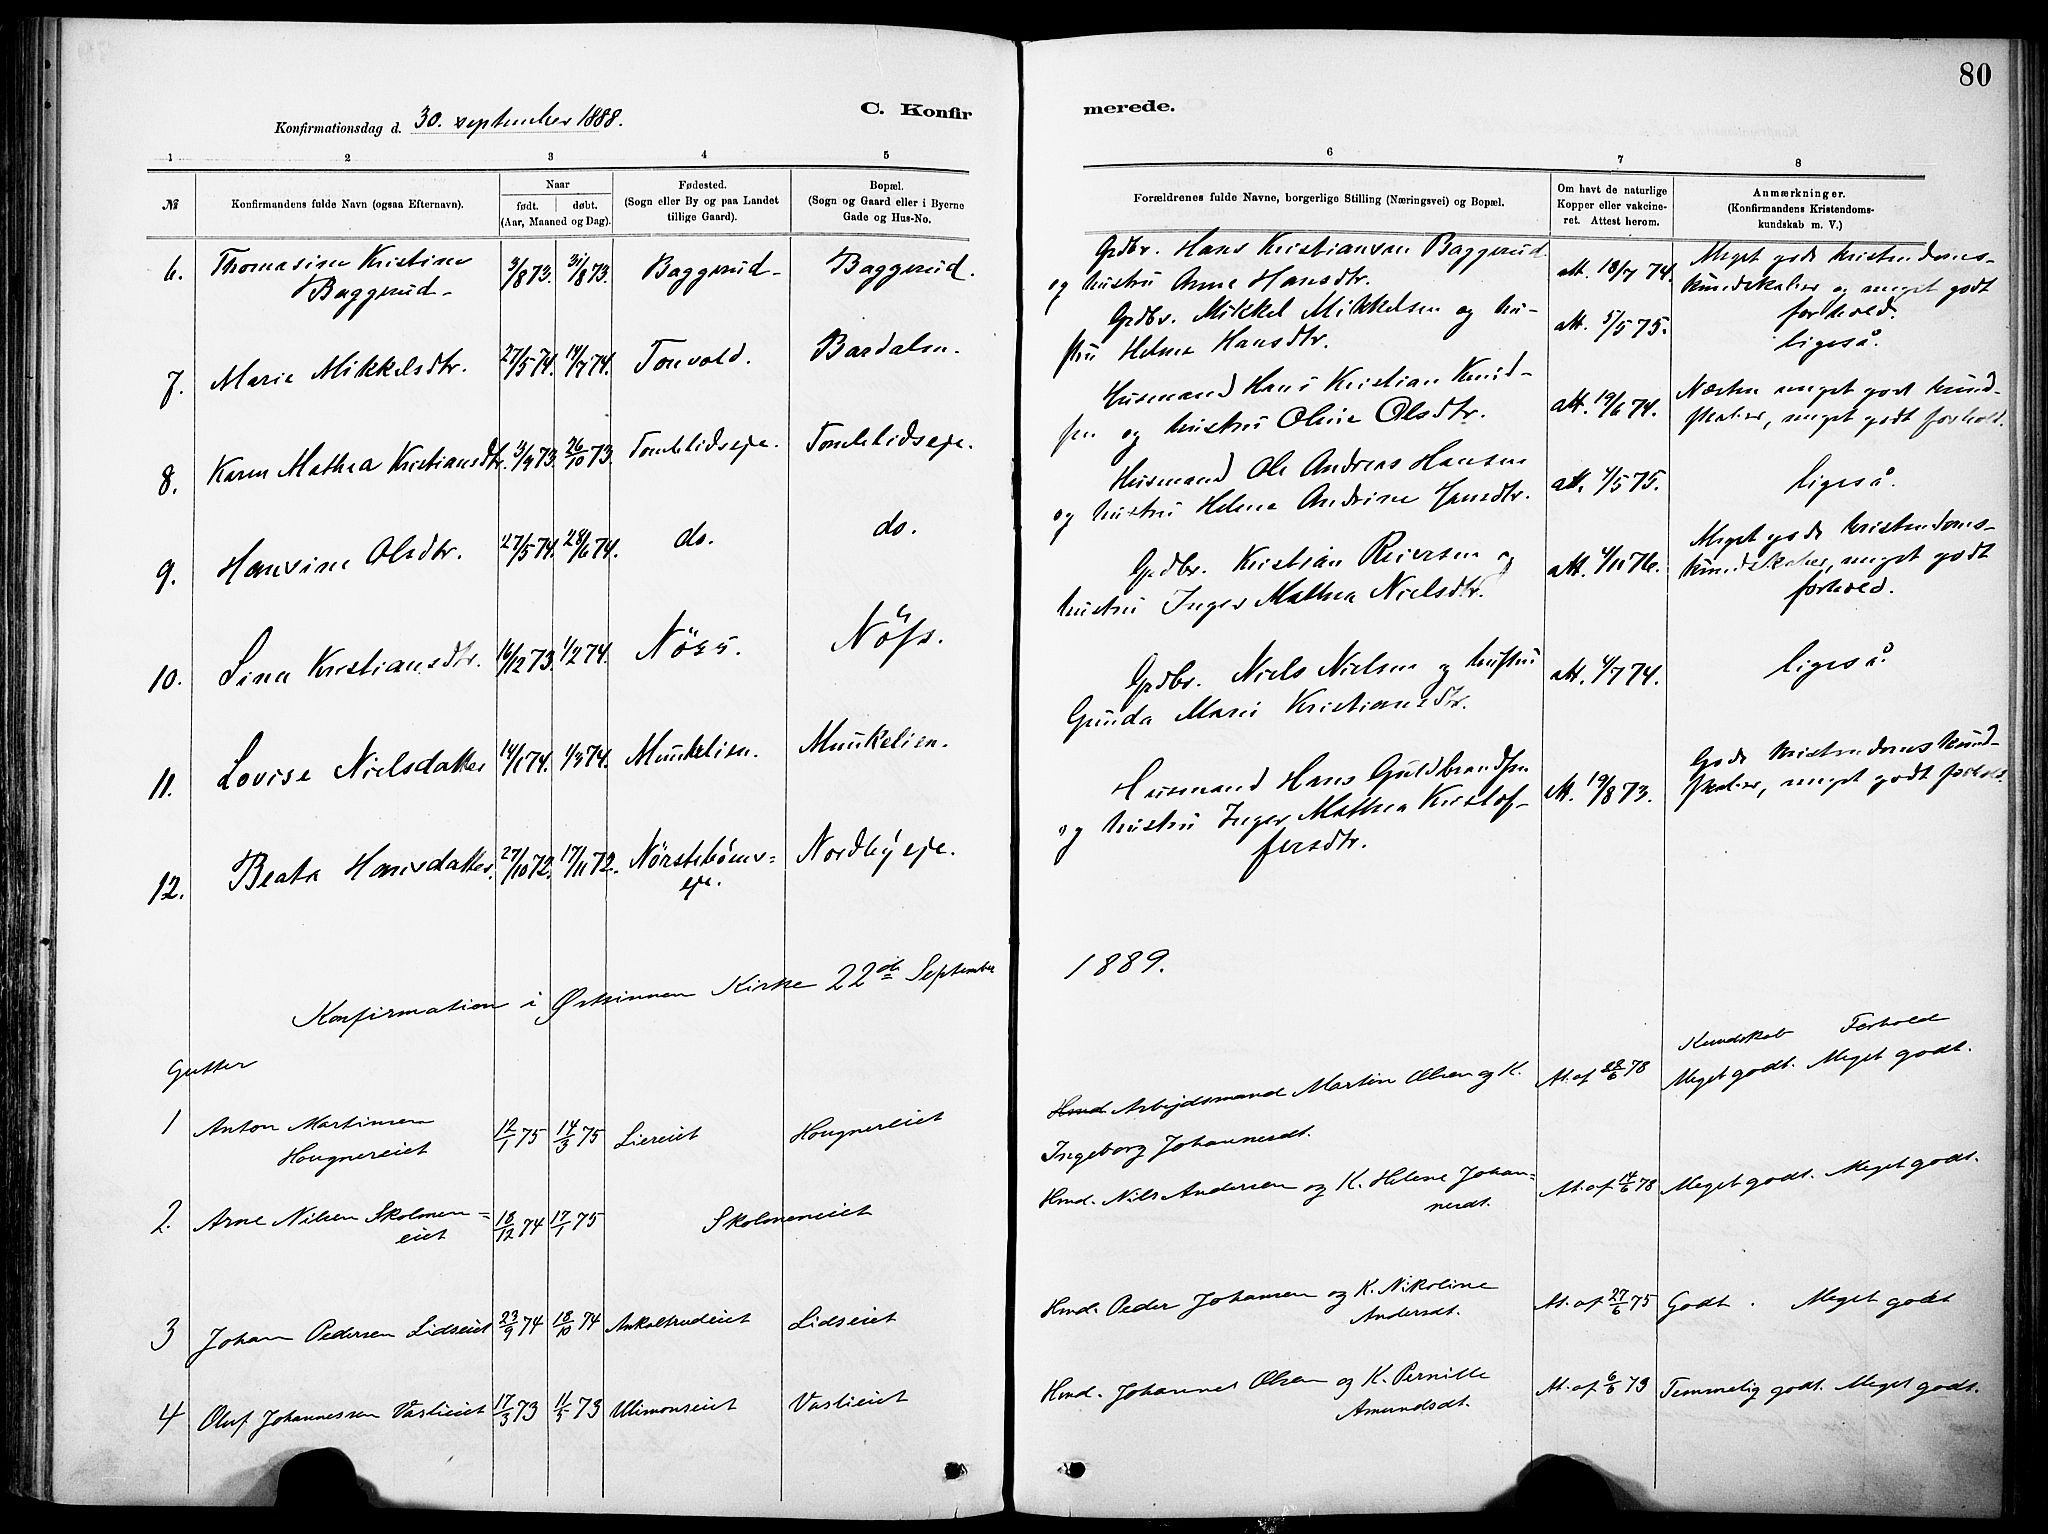 80
C. Konfir
merede.
Konfirmationsdag d. 30. september 1888.
1 2 3 4 5 6 7 8
№
Konfirmandens fulde Navn (ogsaa Efternavn).
Naar
født. døbt.
(Aar, Maaned og Dag).
Fødested.
(Sogn eller By og paa Landet
tillige Gaard).
Bopæl.
(Sogn og Gaard eller i Byerne
Gade og Hus-No.
Forældrenes fulde Navne, borgerlige Stilling (Næringsvei) og Bopæl.
Om havt de naturlige
Kopper eller vakcine-
ret. Attest herom.
Anmærkninger.
(Konfirmandens Kristendoms-
kundskab m. V.)
6. Thomasine Kristine 3/8 73. 31/8 73. Baggerud Baggerud.
Baggerud
Grdbr. Hans Kristiansen Baggerud
og hustru Anne Hansdtr.
att. 18/7 74. Meget gode kristendoms-
kundskaber og meget godt
forhold.
7. Marie Mikkelsdtr. 27/5 74. 19/7 74. Tonvold. Bardalen.
Grdbr. Mikkel Mikkelsen og hu-
stru Helene Hansdtr.
att. 5/5 75. ligeså.
8. Karen Mathea Kristiansdtr. 3/9 73. 26/10 73. Tomlelidseje. Tomlelidseje.
Husmand Hans Kristian Knud-
sen og hustru Oline Olsdtr.
att. 19/6 74. Næsten meget god kund-
skaber, meget godt forhold.
9. Hansine Olsdtr. 27/5 74. 28/6 74. do. do.
Husmand Ole Andreas Hansen
og hustru Helene Andrine Hansdtr.
att. 4/5 75. ligeså.
10. Lina Kristiansdtr. 16/12 73. 1/2 74. Nöss. Nöss.
Grdbr. Kristian Reiersen og
hustru Inger Mathea Nielsdtr.
att. 4/11 76. Meget gode kristendoms-
kundskaber, meget godt
forhold.
11. Lovise Nielsdatter 14/1 74. 1/3 74. Munkelien. Munkelien.
Grdbr. Niels Nielsen og hustru
Gunda Marie Kristiansdtr.
att. 4/7 74. ligeså.
12. Beata Hansdatter. 27/10 72. 17/11 72. Nørstebøms= Nordbyeje.
eje.
Husmand Hans Guldbrandsen
og hustru Inger Mathea Kristof-
fersdtr.
att. 19/8 73. Gode kristendomskund-
skaber, meget godt forhold
Konfirmation i Østsinnen Kirke 22de September
1889.
Gutter
Kundskab Forhold
1 Anton Martinsen 12/1 75 14/3 75 Liereiet Hougnereiet
Hougnereiet
Hmd. Arbejdsmand Martin Olsen og K.
Ingeborg Johannesdt.
At. af 28/6 78 Meget godt. Meget godt.
2. Arne Nilsen Skolmen= 18/12 74 17/1 75 Skolmeneiet
eiet
Hmd. Nils Andersen og K. Helene Johan=
nesdt.
At. af 14/6 78 Meget godt. Meget godt.
3 Johan Pedersen Lidseiet 23/9 74 18/10 74 Ankoltrudeiet Lidseiet
Hmd. Peder Johansen og K. Nikoline
Andersdt.
At. af 27/6 75 Godt. Meget godt
4 Oluf Johannessen Vaslieiet 17/3 73 11/5 73 Ulimonseiet Vaslieiet
Hmd. Johannes Olsen og K. Pernille
Amundsdt.
At. af 6/6 73 Temmelig godt. Meget godt.